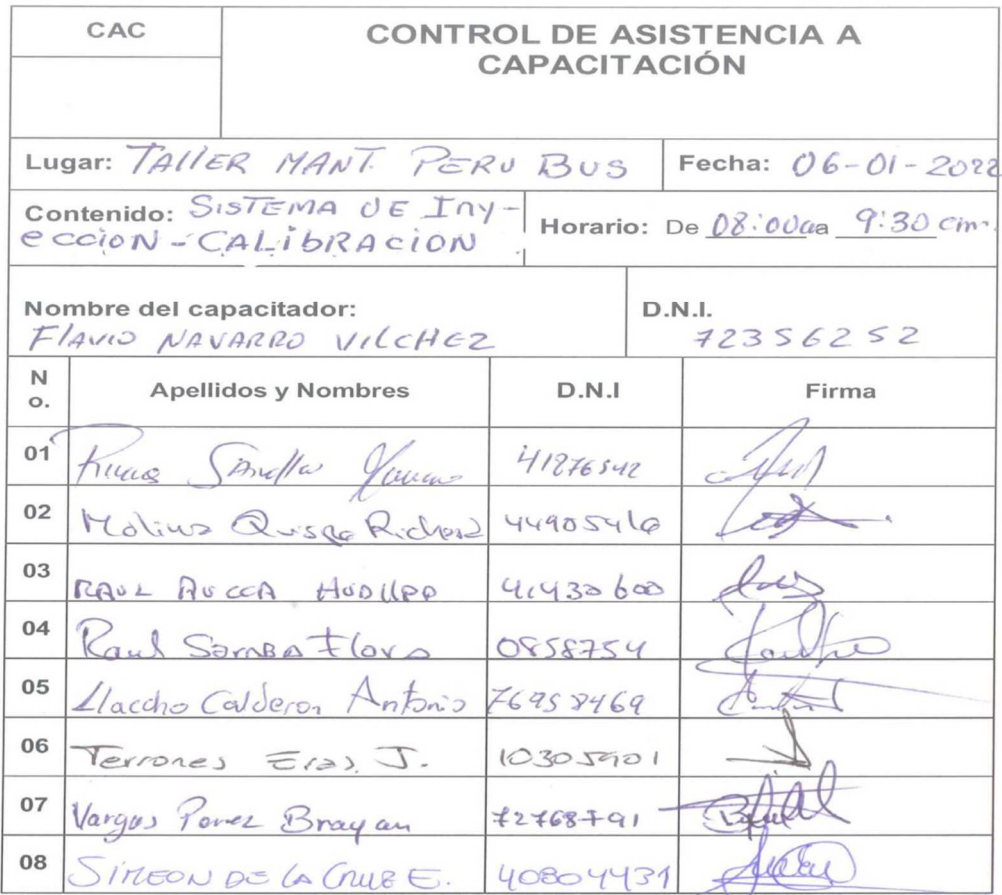 CAC
CONTROL DE ASISTENCIA A
CAPACITACIÓN
Lugar: TAllER MANT. PERU BUS
Fecha: 06-01-2022
Contenido: SISTEMA DE Iny-
eccioN - CALibRAcioN
Horario: De 08:00 a 9:30
Nombre del capacitador:
FlAVIO NAVARRO VILCHEZ
D.N.I.
72356252
N
o.
Apellidos y Nombres
D.N.I
Firma
01 41276542
02 Molina Quispe Richard 44905416
03 RAUL AUCCA 41430600
04 Raul 0858754
05 Llaccho Calderon Antonio 76958469
06 Terrones J. 10305901
07 Vargas Brayan 72768791
08 SIMEON DE LA CRUZ E. 40804431